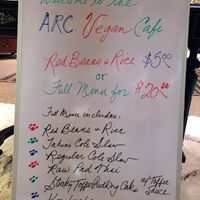 Welcome to the
ARC Vegan Cafe
Red Beans & Rice $5.00
or
Full Menu for $20.00
Full Menu includes:
Red Beans & Rice
Tahini Cole Slaw
Regular Cole Slaw
Raw Pad Thai
Sticky Toffee Pudding Cake w/ Toffee
Sauce